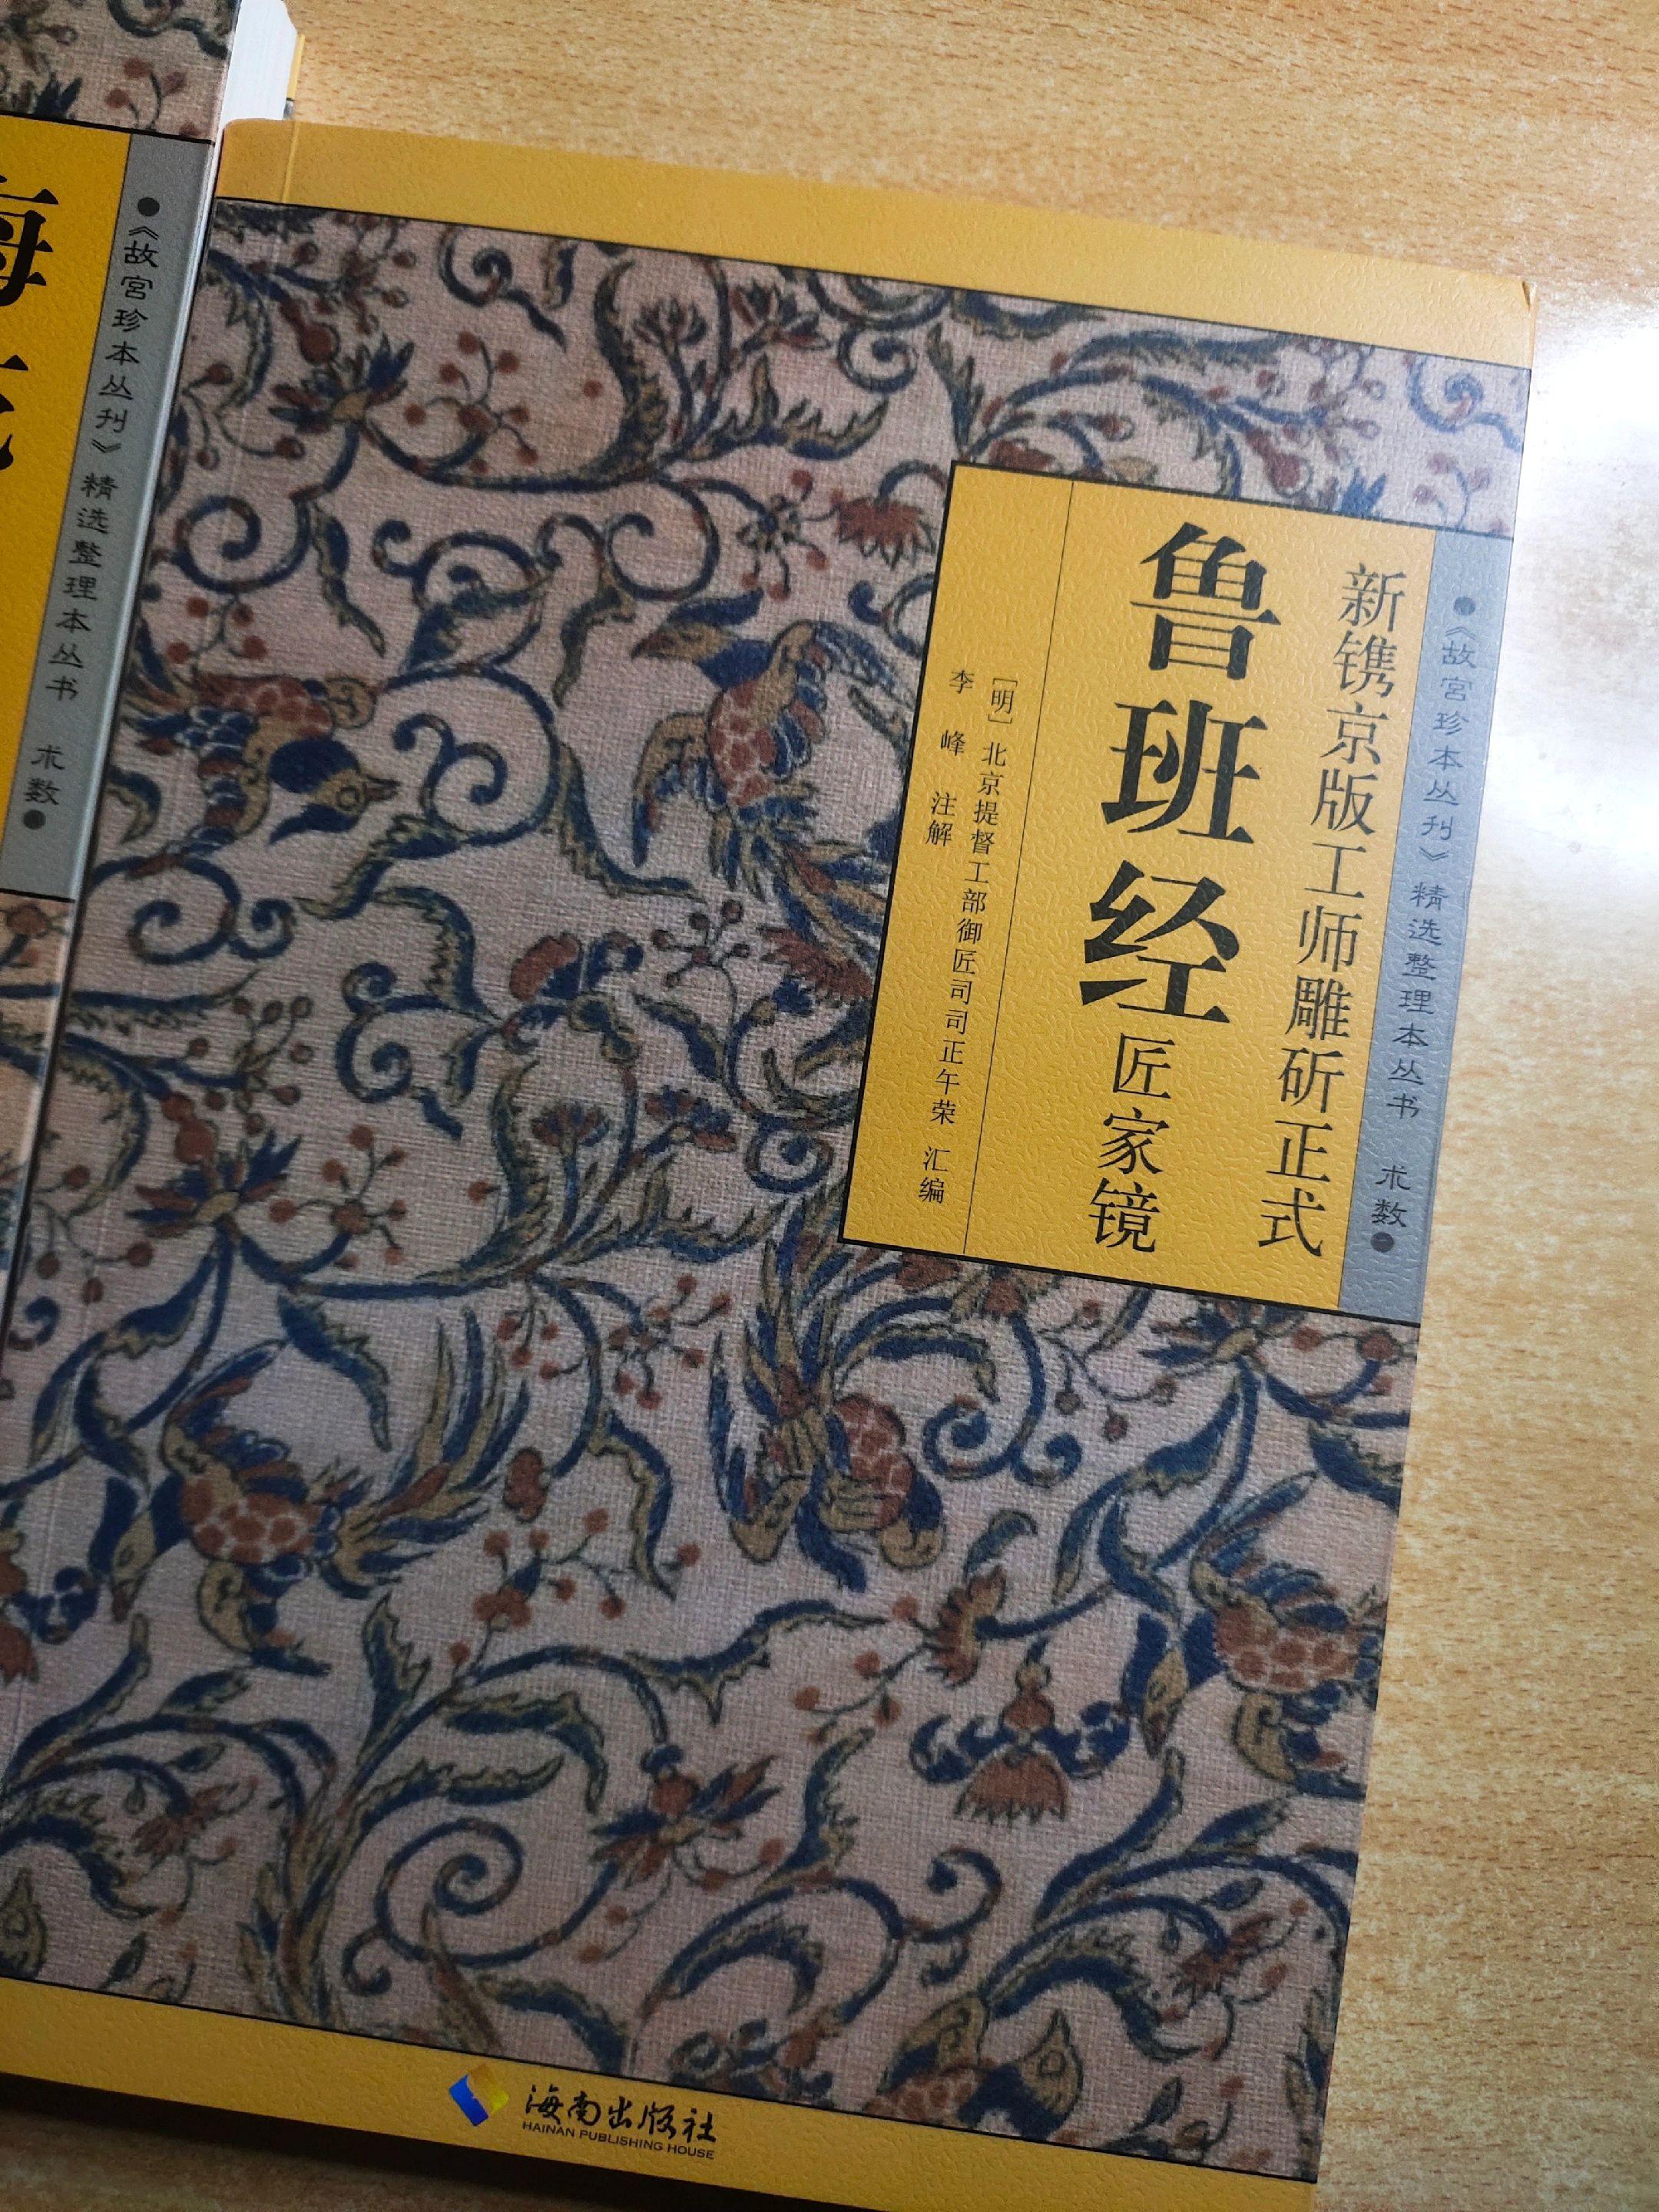 《故宫珍本丛刊》精选整理本丛书 术数
新镌京版工师雕斫正式
鲁班经匠家镜
[明]北京提督工部御匠司司正午荣 汇编
李峰 注解
海南出版社
HAINAN PUBLISHING HOUSE
《故宫珍本丛刊》精选整理本丛书 术数